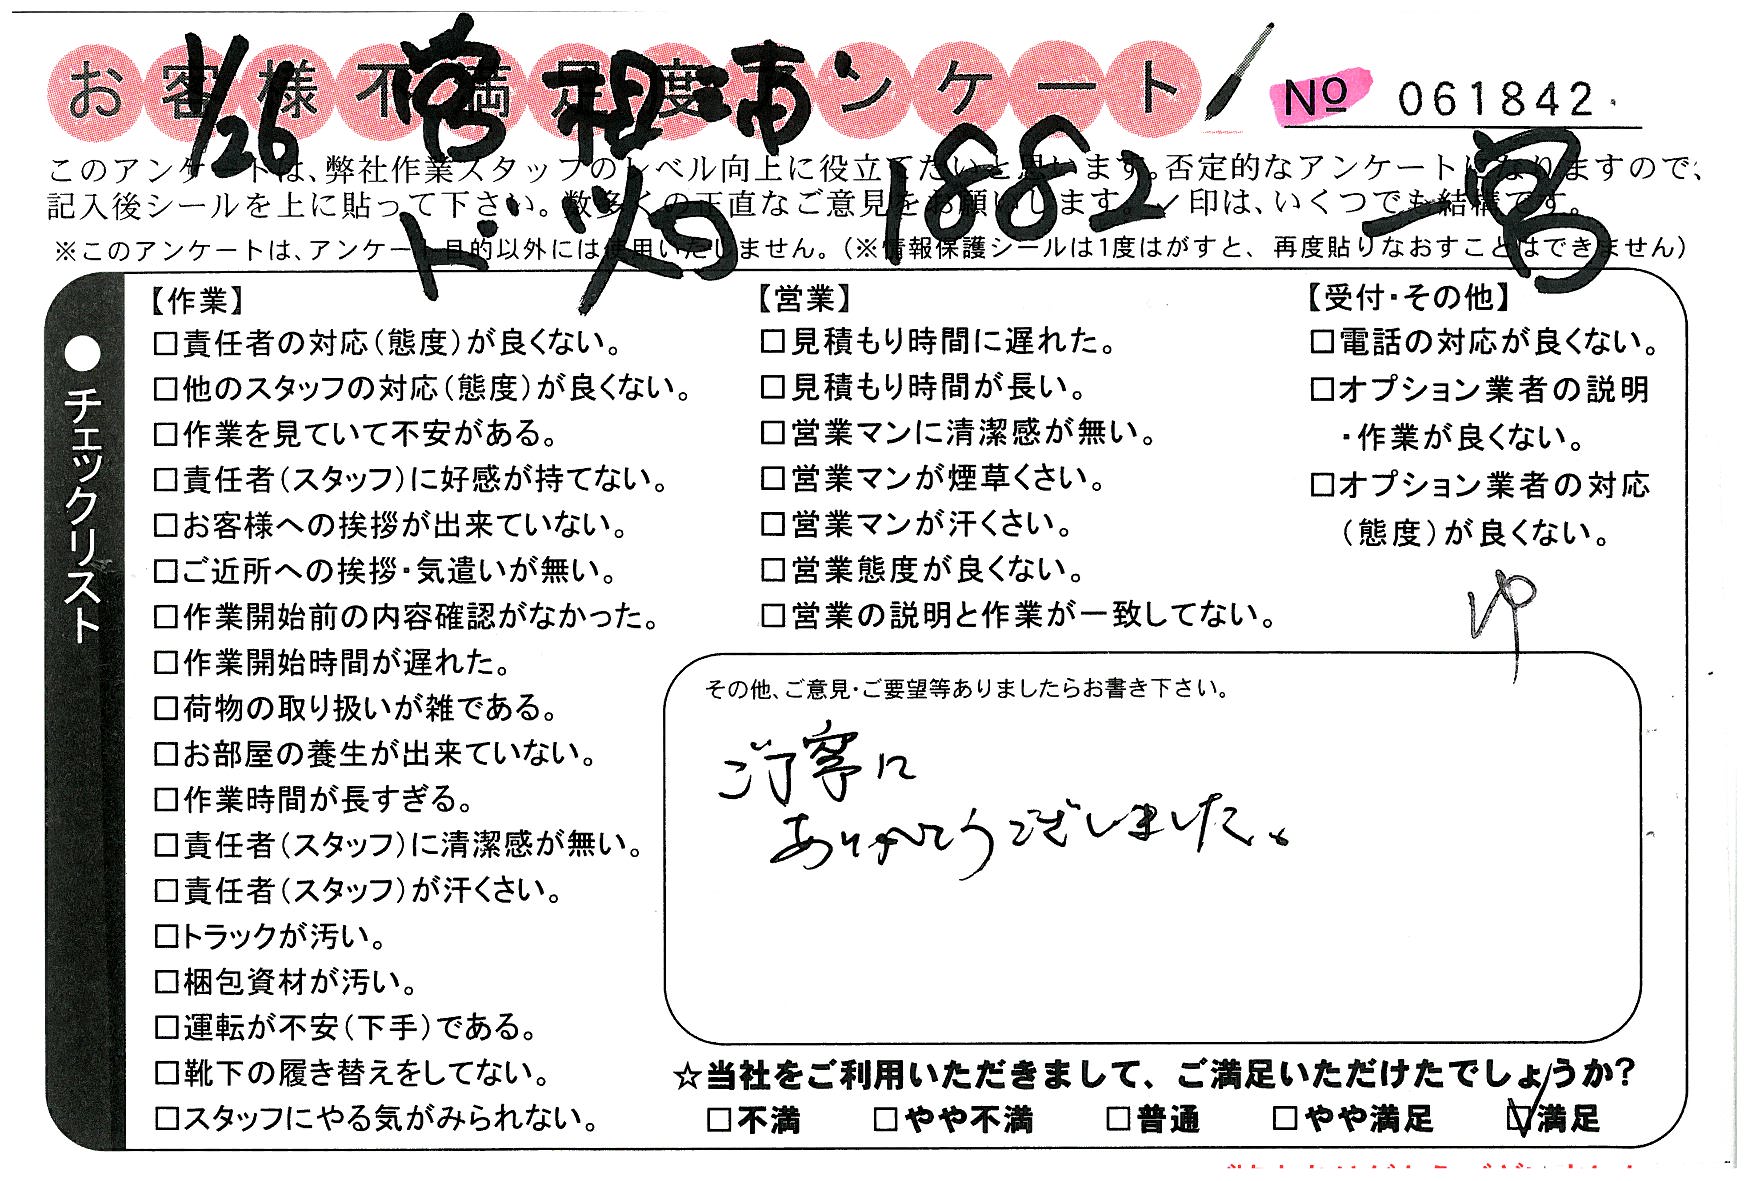 お客様不満足度アンケート
No 061842
1/26
1882
このアンケートは、弊社作業スタッフのレベル向上に役立てたいと思います。否定的なアンケートになりますので、
記入後シールを上に貼って下さい。数多くの正直なご意見をお願いします。✓印は、いくつでも結構です。
※このアンケートは、アンケート目的以外には使用いたしません。(※情報保護シールは1度はがすと、再度貼りなおすことはできません)
●チェックリスト
【作業】
□責任者の対応(態度)が良くない。
□他のスタッフの対応(態度)が良くない。
□作業を見ていて不安がある。
□責任者(スタッフ)に好感が持てない。
□お客様への挨拶が出来ていない。
□ご近所への挨拶・気遣いが無い。
□作業開始前の内容確認がなかった。
□作業開始時間が遅れた。
□荷物の取り扱いが雑である。
□お部屋の養生が出来ていない。
□作業時間が長すぎる。
□責任者(スタッフ)に清潔感が無い。
□責任者(スタッフ)が汗くさい。
□トラックが汚い。
□梱包資材が汚い。
□運転が不安(下手)である。
□靴下の履き替えをしてない。
□スタッフにやる気がみられない。
【営業】
□見積もり時間に遅れた。
□見積もり時間が長い。
□営業マンに清潔感が無い。
□営業マンが煙草くさい。
□営業マンが汗くさい。
□営業態度が良くない。
□営業の説明と作業が一致してない。
【受付・その他】
□電話の対応が良くない。
□オプション業者の説明
・作業が良くない。
□オプション業者の対応
(態度)が良くない。
その他、ご意見・ご要望等ありましたらお書き下さい。
ご丁寧に
ありがとうございました。
☆当社をご利用いただきまして、ご満足いただけたでしょうか?
□不満 □やや不満 □普通 □やや満足 ☑満足